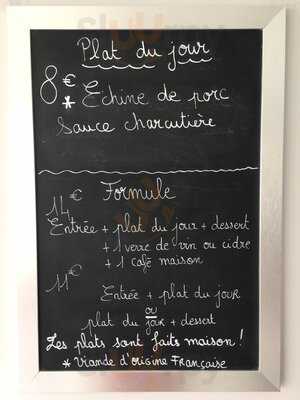 Plat du jour
8€ * Echine de porc
Sauce charcutière
14€ Formule
Entrée + plat du jour + dessert
+ 1 verre de vin ou cidre
+ 1 café maison
11€
Entrée + plat du jour
ou
plat du jour + dessert
Les plats sont faits maison !
* Viande d'origine Française